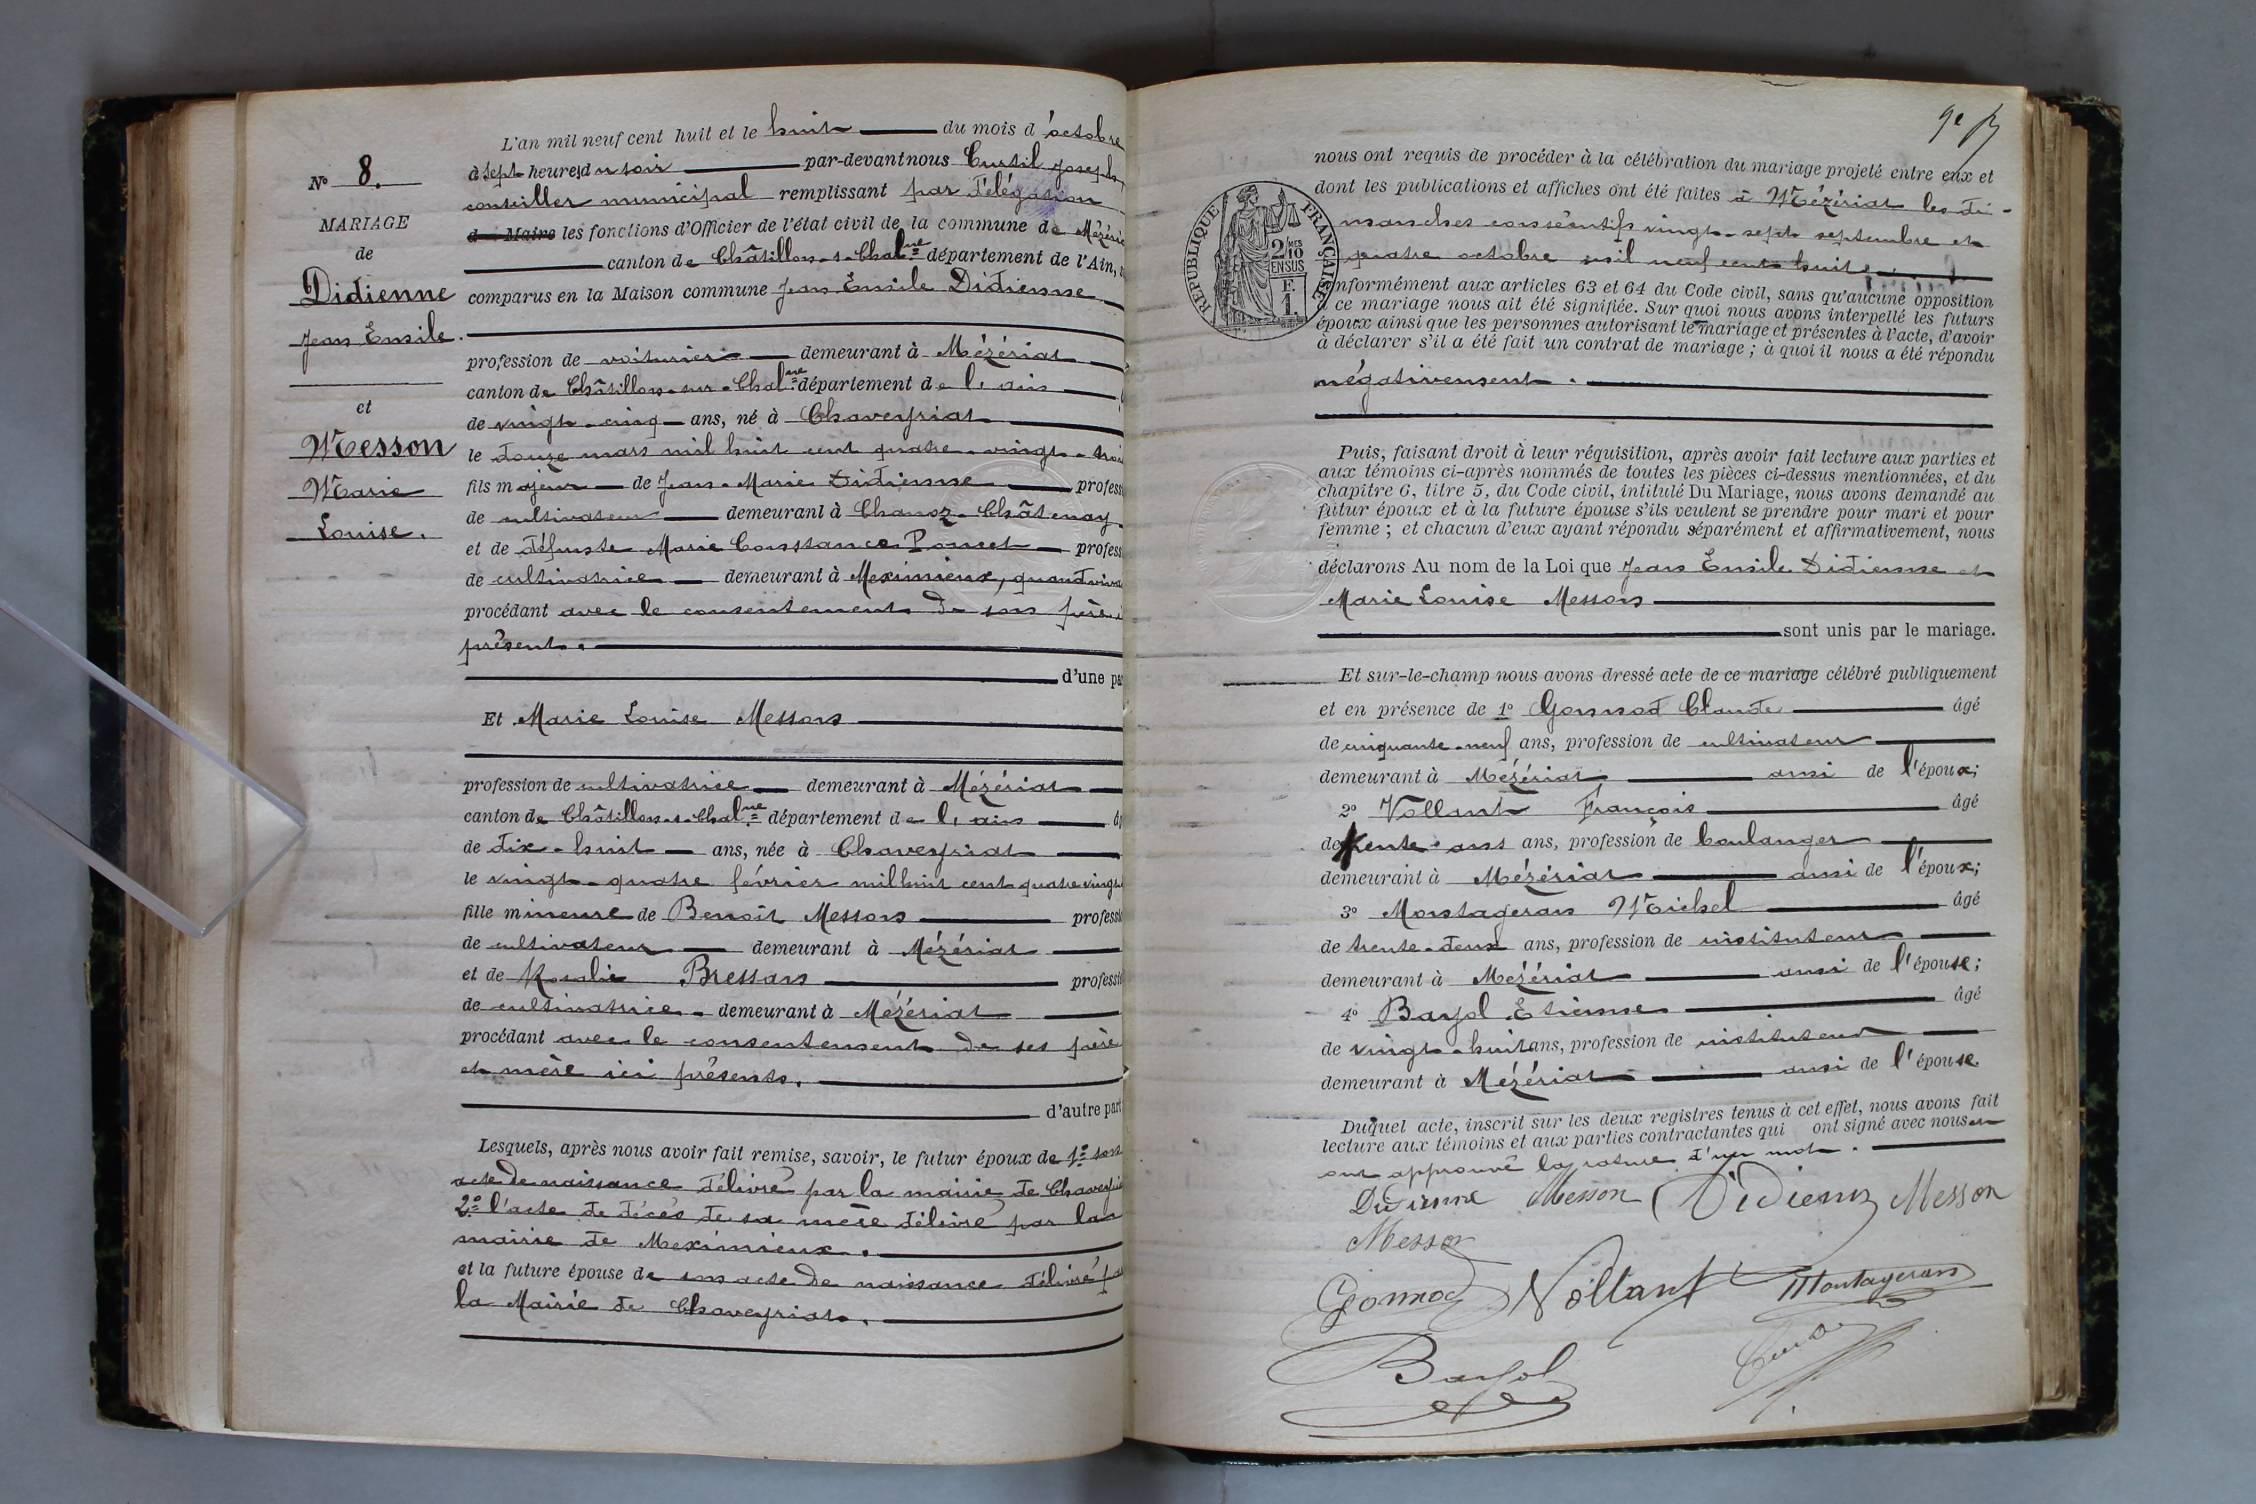 N° 8.
MARIAGE
de
Didienne
Jean Emile.
et
Messon
Marie
Louise.
L'an mil neuf cent huit et le huit du mois d'octobre
à sept heures du soir par-devant nous Curtil Joseph,
conseiller municipal remplissant par délégation
d Maire les fonctions d'Officier de l'état civil de la commune de Mézéria
canton de Châtillon-s-Chalne département de l'Ain,
comparus en la Maison commune Jean Emile Didienne
profession de voiturier demeurant à Mézériat
canton de Châtillon-sur-Chalne département de l'ain
de vingt-cinq ans, né à Chaveyriat
le douze mars mil huit cent quatre-vingt-trois
fils majeur de Jean-Marie Didienne profess
de cultivateur demeurant à Chanoz-Châtenay
et de défunte Marie Constance Poncet profess
de cultivatrice demeurant à Meximieux, quand viva
procédant avec le consentement de son père
présent.
d'une par
Et Marie Louise Messon
profession de cultivatrice demeurant à Mézériat
canton de Châtillon-s-Chalne département de l'ain
de dix-huit ans, née à Chaveyriat
le vingt-quatre février mil huit cent quatre vingt
fille mineure de Benoît Messon professi
de cultivateur demeurant à Mézériat
et de Rosalie Bressan professi
de cultivatrice demeurant à Mézériat
procédant avec le consentement de ses père
et mère ici présents.
d'autre part
Lesquels, après nous avoir fait remise, savoir, le futur époux de 1° son
acte de naissance délivré par la mairie de Chaveyria
2° l'acte de décès de sa mère délivré par la
mairie de Meximieux.
et la future épouse de son acte de naissance délivré pa
la Mairie de Chaveyriat.
RÉPUBLIQUE FRANÇAISE
2/10 MES
EN SUS
F.
1.
nous ont requis de procéder à la célébration du mariage projeté entre eux et
dont les publications et affiches ont été faites à Mézériat les di-
manches consécutifs vingt-sept septembre et
quatre octobre mil neuf cent huit.
onformément aux articles 63 et 64 du Code civil, sans qu'aucune opposition
à ce mariage nous ait été signifiée. Sur quoi nous avons interpellé les futurs
époux ainsi que les personnes autorisant le mariage et présentes à l'acte, d'avoir
à déclarer s'il a été fait un contrat de mariage ; à quoi il nous a été répondu
négativement.
Puis, faisant droit à leur réquisition, après avoir fait lecture aux parties et
aux témoins ci-après nommés de toutes les pièces ci-dessus mentionnées, et du
chapitre 6, titre 5, du Code civil, intitulé Du Mariage, nous avons demandé au
futur époux et à la future épouse s'ils veulent se prendre pour mari et pour
femme ; et chacun d'eux ayant répondu séparément et affirmativement, nous
déclarons Au nom de la Loi que Jean Emile Didienne et
Marie Louise Messon
sont unis par le mariage.
Et sur-le-champ nous avons dressé acte de ce mariage célébré publiquement
et en présence de 1° Gonnod Claude âgé
de cinquante-neuf ans, profession de cultivateur
demeurant à Mézériat ami de l'époux;
2° Vollant François âgé
de trente ans ans, profession de boulanger
demeurant à Mézériat ami de l'époux;
3° Montageran Michel âgé
de trente-deux ans, profession de instituteur
demeurant à Mézériat ami de l'épouse;
4° Bayol Etienne âgé
de vingt-huit ans, profession de instituteur
demeurant à Mézériat ami de l'épouse
Duquel acte, inscrit sur les deux registres tenus à cet effet, nous avons fait
lecture aux témoins et aux parties contractantes qui ont signé avec nous et
ont approuvé la rature d'un mot.
Didienne Messon Didienne Messon
Messon
Gonnod Vollant Montageran
Bayol